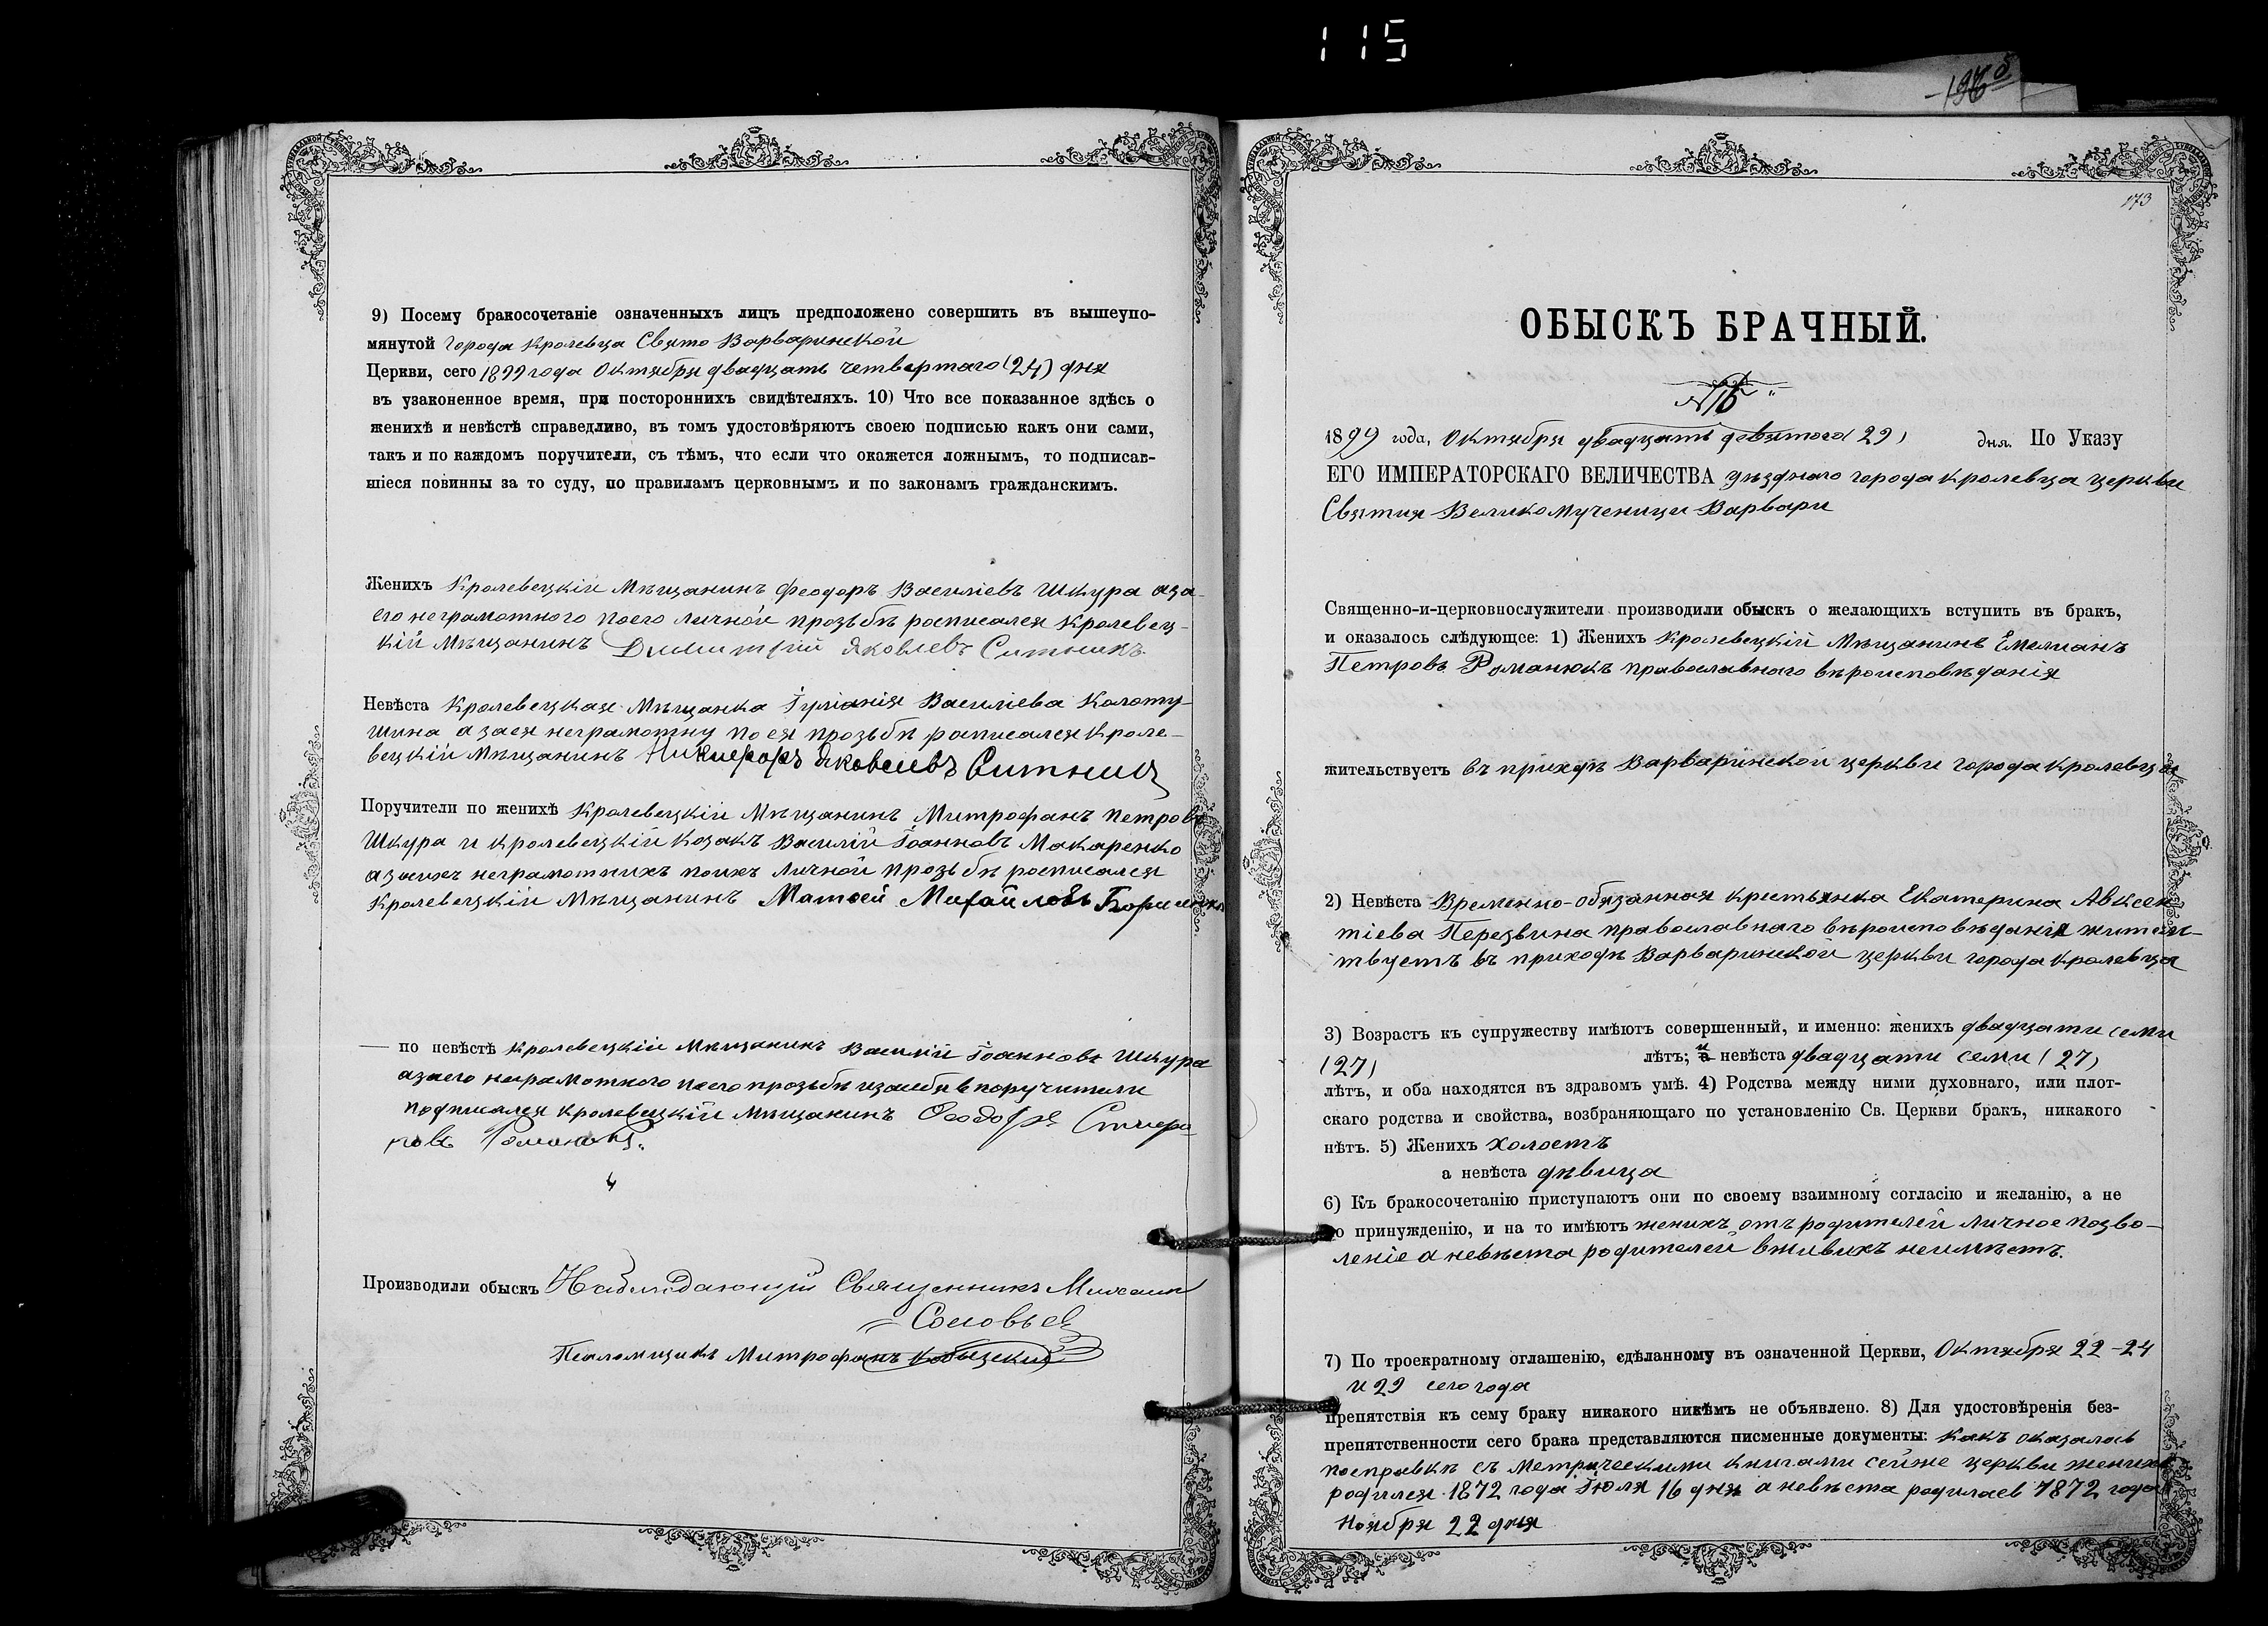 115
9) Посему бракосочетаніе означенныхъ лицъ предположено совершить въ вышеупо-
мянутой города Кролевца Свято Варваринской
Церкви, сего 1899 года Октября двадцать четвертаго (24) дня
въ узаконенное время, при постороннихъ свидѣтеляхъ. 10) Что все показанное здѣсь о
женихѣ и невѣстѣ справедливо, въ томъ удостовѣряютъ своею подписью какъ они сами,
такъ и по каждомъ поручители, съ тѣмъ, что если что окажется ложнымъ, то подписав-
шіеся повинны за то суду, по правиламъ церковнымъ и по законамъ гражданскимъ.
Женихъ Кролевецкій Мѣщанинъ Феодоръ Василіевъ Шкура аза
его неграмотного поего личной прозьбѣ росписался Кролевец-
кій Мѣщанинъ Димитрій Яковлевъ Ситникъ.
Невѣста Кролевецкая Мѣщанка Іуліанія Василіева Колоту-
шина азаея неграмотну по ея прозьбѣ росписался Кроле-
вецкій Мѣщанинъ Никифоръ Яковлевъ
Поручители по женихѣ Кролевецкій Мѣщанинъ Митрофанъ Петровъ
Шкура и Кролевецкій Козакъ Василій Іоанновъ Макаренко
азаихъ неграмотнихъ поихъ личной прозьбѣ росписался
Кролевецкій Мѣщанинъ Матвей Михайловъ
— по невѣстѣ Кролевецкій Мѣщанинъ Василій Іоанновъ Шкура
азаего неграмотного поего прозьбѣ изасебя в поручители
подписался Кролевецкій Мѣщанинъ Ѳеодоръ
Производили обыскъ Наблюдающій Священникъ Михаил
Соловьев
Псаломщикъ Митрофанъ
173
ОБЫСКЪ БРАЧНЫЙ.
1899 года, Октября двадцать девятого (29) дня. По Указу
ЕГО ИМПЕРАТОРСКАГО ВЕЛИЧЕСТВА уѣзднаго города Кролевца церкви
Святия Великомученици Варвари
Священно-и-церковнослужители производили обыскъ о желающихъ вступить въ бракъ,
и оказалось слѣдующее: 1) Женихъ Кролевецкій Мѣщанинъ Емелианъ
Петровъ Романюкъ православнаго вѣроисповѣданія
жительствуетъ въ приходѣ Варваринской церкви города Кролевца
2) Невѣста Временно-обязанная крестьянка Екатерина Авксен
тіева Перезвина православнаго вѣроисповѣданія жительс-
твуетъ въ приходѣ Варваринской церкви города Кролевца
3) Возрастъ къ супружеству имѣютъ совершенный, и именно: женихъ двадцати семи
(27) лѣтъ; и невѣста двадцати семи (27)
лѣтъ, и оба находятся въ здравомъ умѣ. 4) Родства между ними духовнаго, или плот-
скаго родства и свойства, возбраняющаго по установленію Св. Церкви бракъ, никакого
нѣтъ. 5) Женихъ холостъ
а невѣста дѣвица
6) Къ бракосочетанію приступаютъ они по своему взаимному согласію и желанію, а не
по принужденію, и на то имѣютъ женихъ отъ родителей личное позво-
леніе а невѣста родителей вживихъ неимѣетъ.
7) По троекратному оглашенію, сдѣланному въ означенной Церкви, Октября 22-24
и 29 сего года
препятствія къ сему браку никакого никѣмъ не объявлено. 8) Для удостовѣренія без-
препятственности сего брака представляются писменные документы: какъ оказалось
посправкѣ съ Метрическими книгами сейже церкви женихъ
родился 1872 года Іюля 16 дня а невѣста родилась 1872 года
Ноября 22 дня